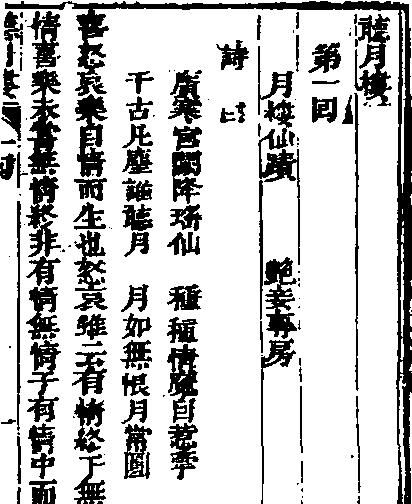 聽月樓
第一回
月樓仙蹟　艷妾專房
詩曰
廣寒宮闕降瑤仙　種種情魔自惹牽
千古凡塵誰聽月　月如無恨月常圓
喜怒哀樂自情而生也怒哀雖云有情終于無
情喜樂未嘗無情終非有情無情子有情中而